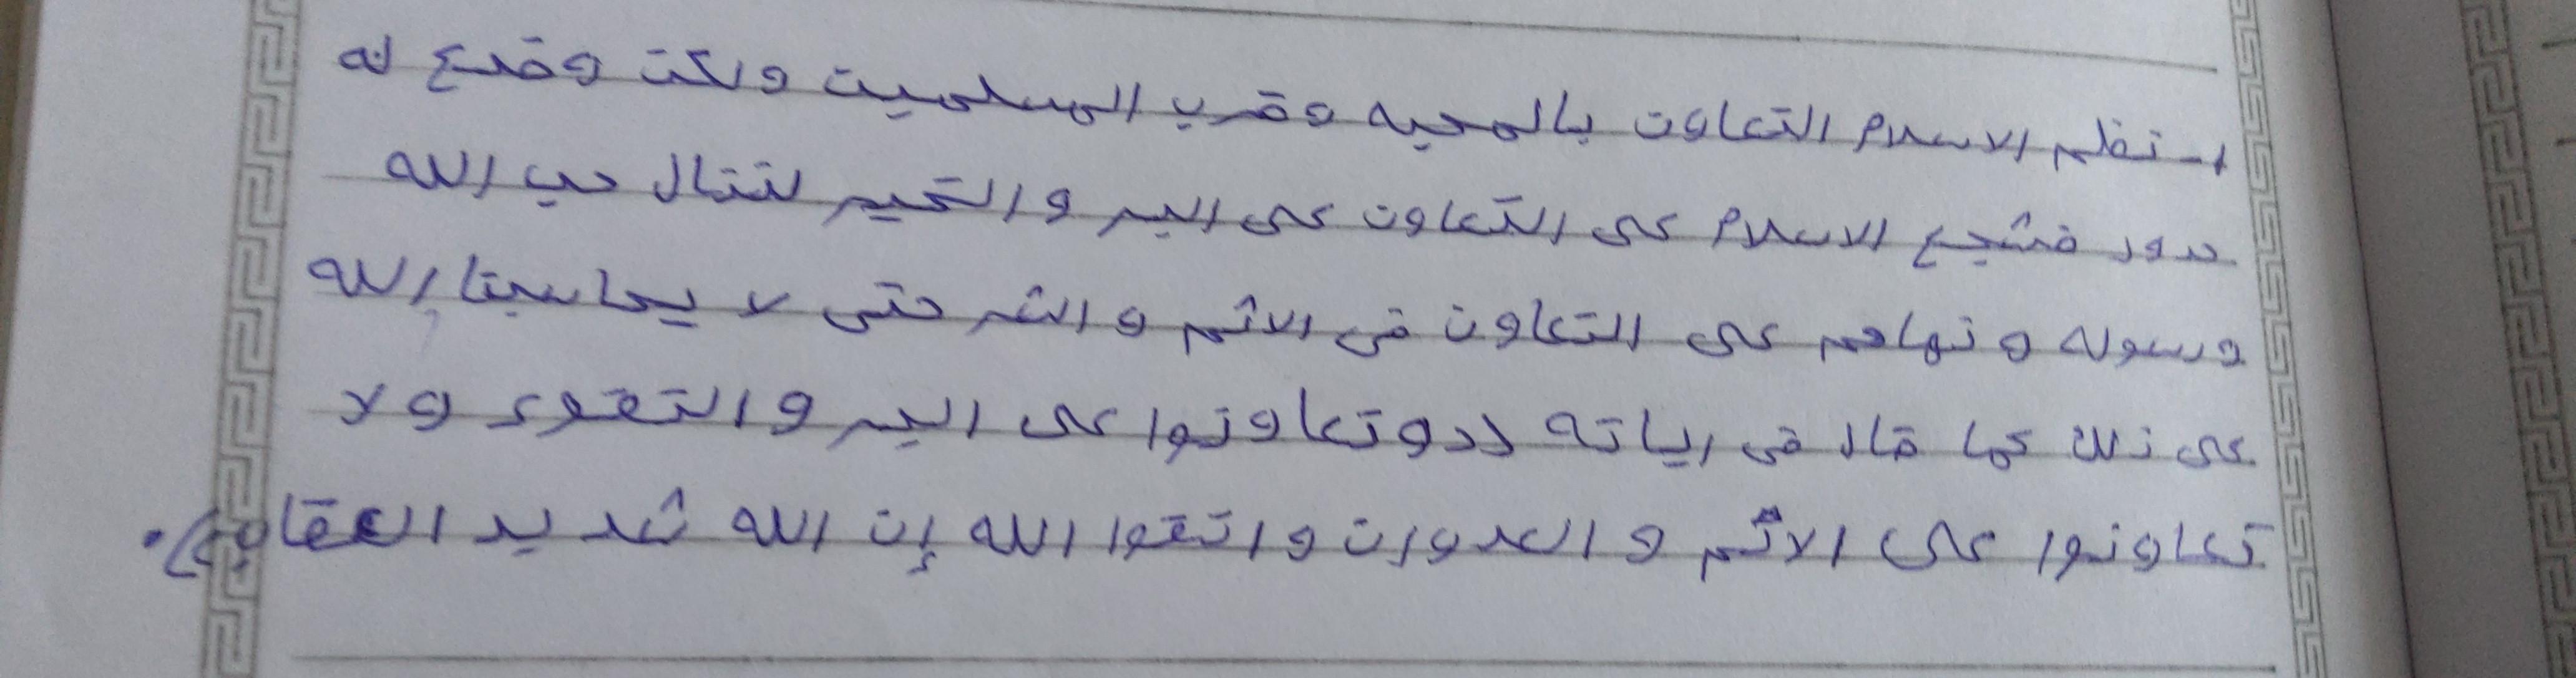 ١- نظم الاسلام التعاون بالمحبه وقرب المسلمين ولكن وضع له
حدود فشجع الاسلام على التعاون على البر والخير لننال حب الله
ورسوله ونهاهم على التعاون في الاثم والشر حتى لا يحاسبنا الله
على ذلك كما قال في اياته ((وتعاونوا على البر والتقوى ولا
تعاونوا على الاثم والعدوان واتقوا الله إن الله شديد العقاب)).